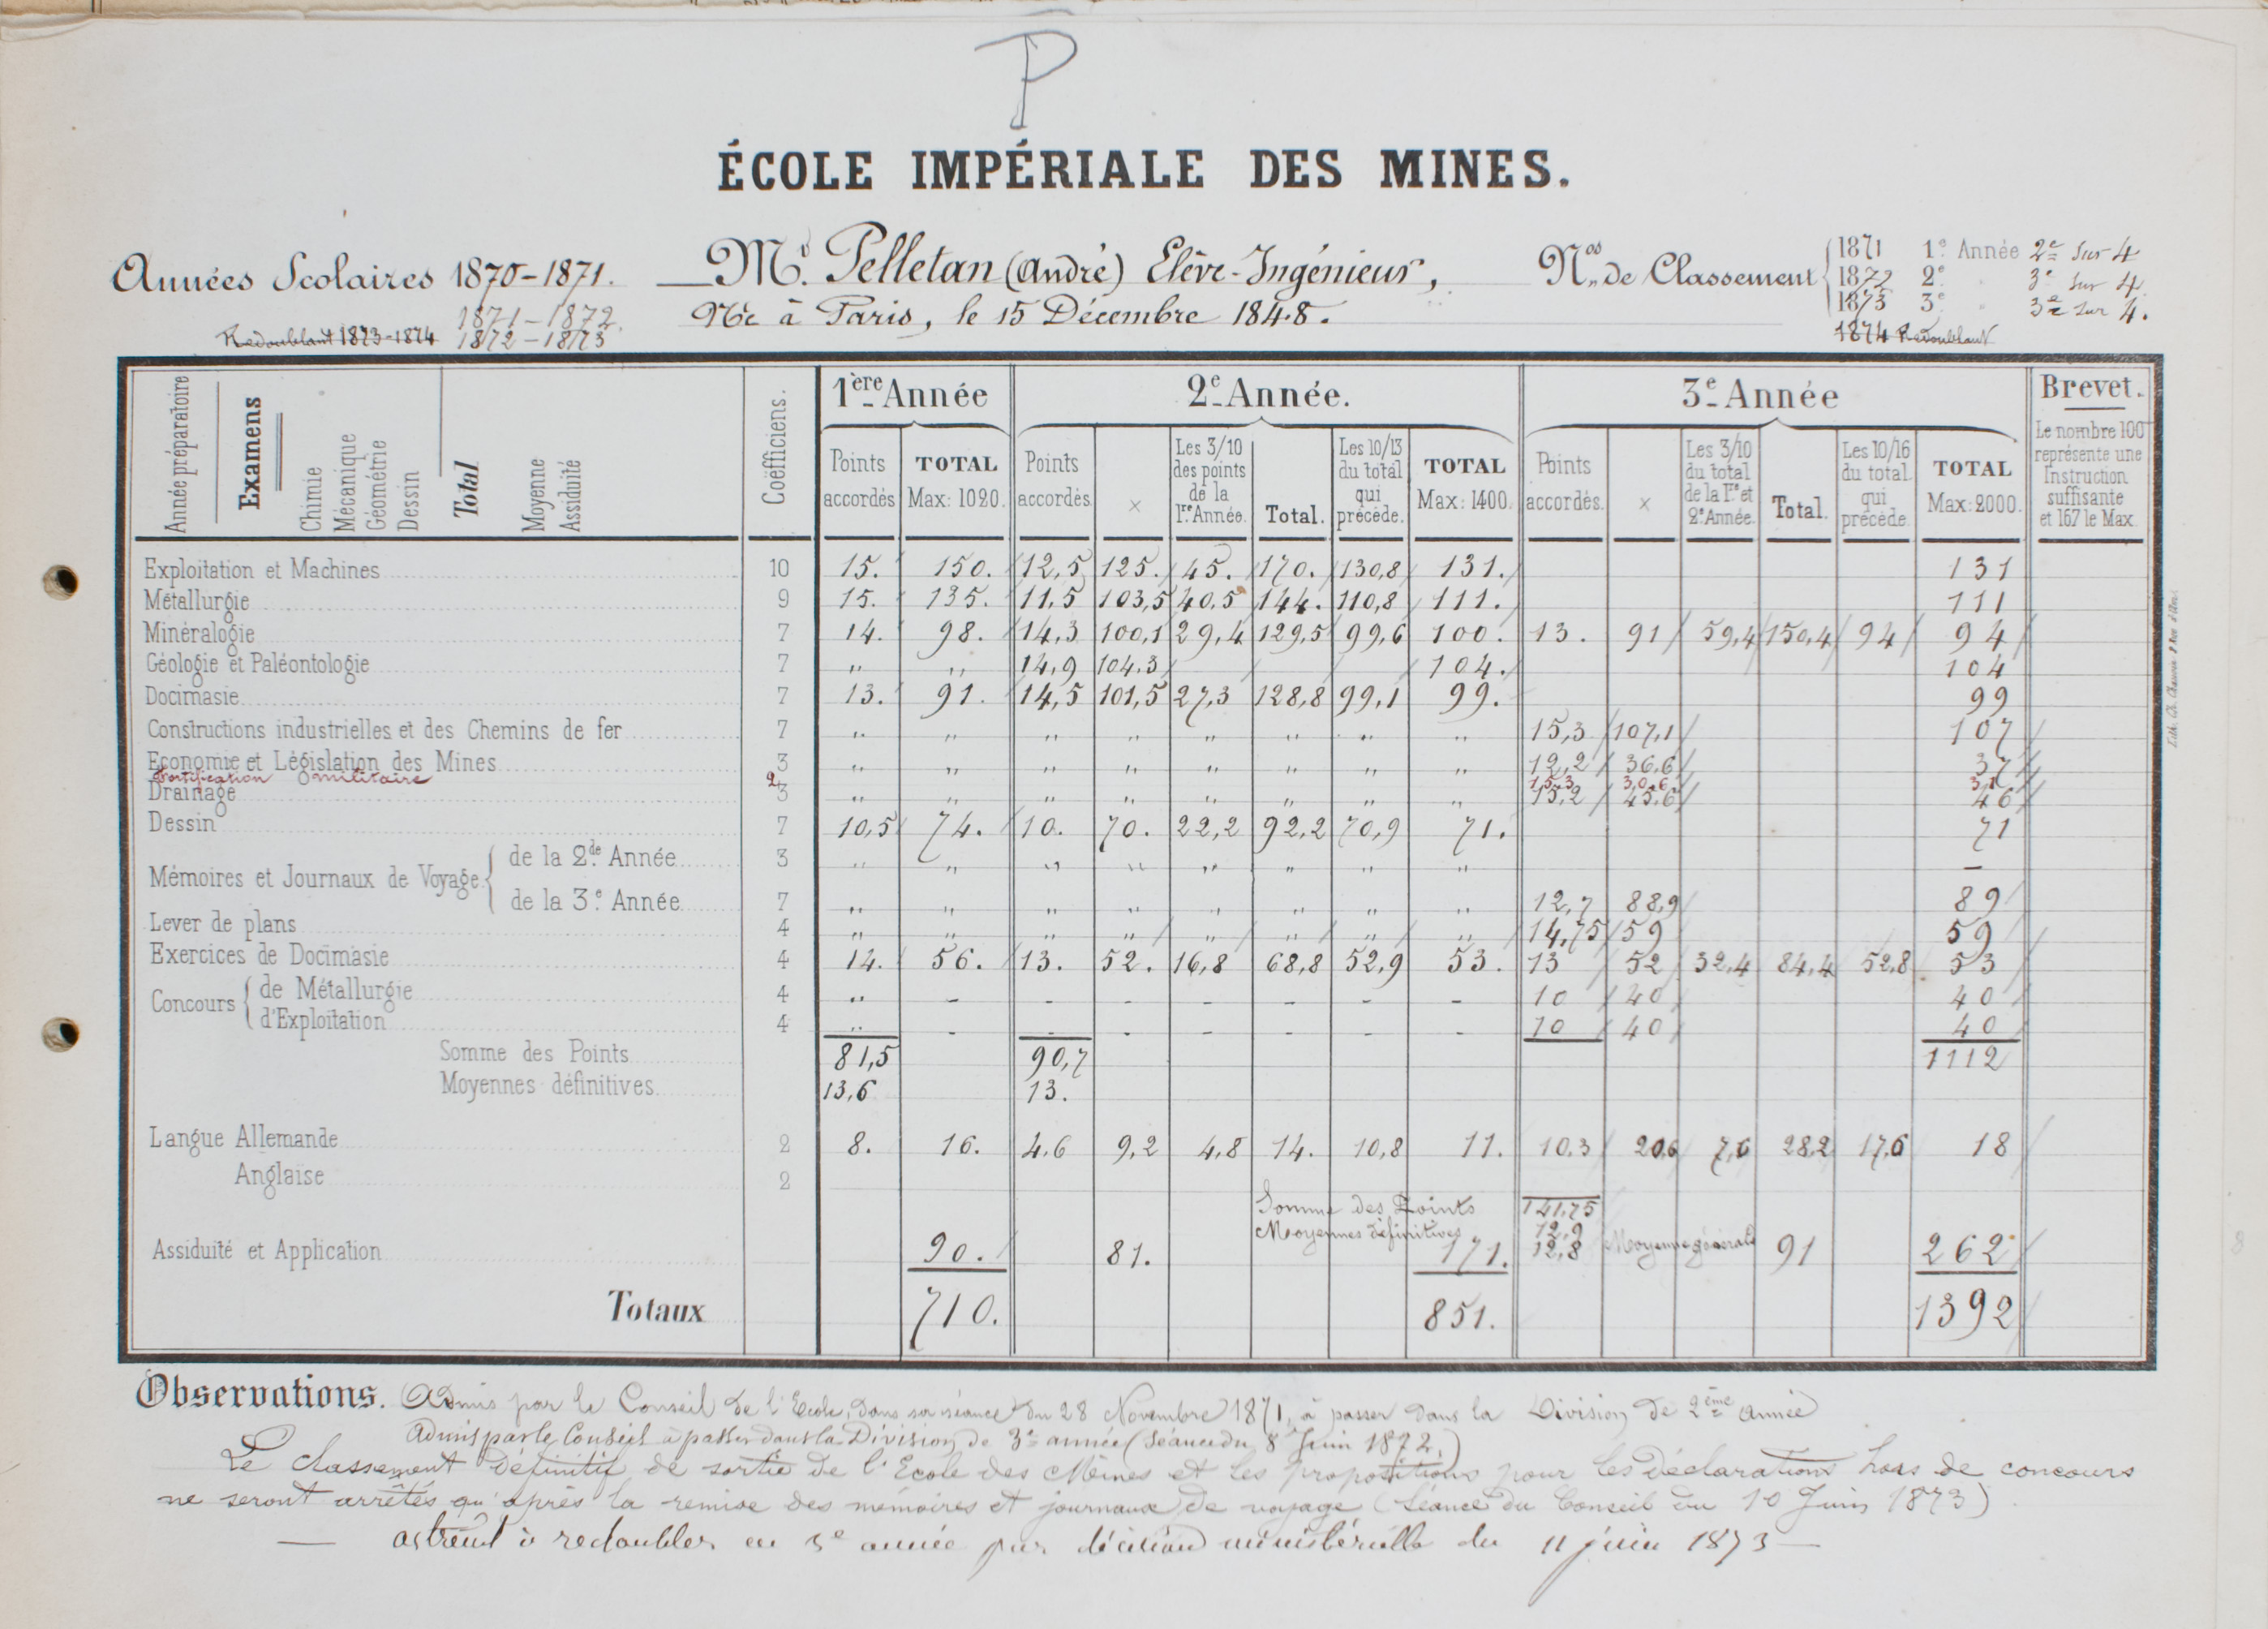 P
ÉCOLE IMPÉRIALE DES MINES.
Années Scolaires 1870-1871.
1871-1872.
Redoublant 1873-1874 1872-1873
Mr. Pelletan (André) Elève-Ingénieur,
Né à Paris, le 15 Décembre 1848.
Nos de Classement
1871 1e. Année 2e sur 4
1872 2e. " 3e sur 4.
1873 3e. " 3e sur 4.
1874 Redoublant
Année préparatoire
Examens
Chimie
Mécanique
Géométrie
Dessin
Total
Moyenne
Assiduité
Coëfficiens.
1ère Année 2e Année. 3e Année Brevet.
Points accordés TOTAL Max: 1020. Points accordés × Les 3/10 des points de la 1re Année. Total. Les 10/13 du total qui précède. TOTAL Max: 1400. Points accordés. × Les 3/10 du total de la 1re et 2e Année. Total. Les 10/16 du total qui précède. TOTAL Max: 2000. Le nombre 100 représente une Instruction suffisante et 167 le Max.
Exploitation et Machines 10 15. 150. 12,5 125. 45. 170. 130,8 131. 131
Métallurgie 9 15. 135. 11,5 103,5 40,5 144. 110,8 111. 111
Minéralogie 7 14. 98. 14,3 100,1 29,4 129,5 99,6 100. 13. 91 59,4 150,4 94 94
Géologie et Paléontologie 7 " " 14,9 104,3 104. 104
Docimasie 7 13. 91. 14,5 101,5 27,3 128,8 99,1 99. 99
Constructions industrielles et des Chemins de fer 7 " " " " " " " " 15,3 107,1 107
Economie et Législation des Mines 3 " " " " " " " " 12,2 36,6 37
Fortification militaire 2 15,3 30,6 31
Drainage 3 " " " " " " " " 15,2 45,6 46
Dessin 7 10,5 74. 10. 70. 22,2 92,2 70,9 71. 71
Mémoires et Journaux de Voyage
de la 2de. Année 3 " " " " " " " " –
de la 3e. Année 7 " " " " " " " " 12,7 88,9 89
Lever de plans 4 " " " " " " " " 14,75 59 59
Exercices de Docimasie 4 14. 56. 13. 52. 16,8 68,8 52,9 53. 13 52 32,4 84,4 52,8 53
Concours
de Métallurgie 4 " - - - - - - - 10 40 40
d'Exploitation 4 " - - - - - - - 10 40 40
Somme des Points 81,5 90,7 1112
Moyennes définitives 13,6 13.
Langue Allemande 2 8. 16. 4,6 9,2 4,8 14. 10,8 11. 10,3 20,6 7,6 28,2 17,6 18
Anglaise 2
Somme des Points 141,75
Moyennes définitives 12,9
Assiduité et Application 90. 81. 171. 12,8 Moyenne générale 91 262
Totaux 710. 851. 1392
Observations. Admis par le Conseil de l'Ecole, dans sa séance du 28 Novembre 1871, à passer dans la Division de 2ème année
Admis par le Conseil à passer dans la Division de 3e année (séance du 8 Juin 1872.)
Le classement définitif de sortie de l'Ecole des Mines et les propositions pour les déclarations hors de concours
ne seront arrêtés qu'après la remise des mémoires et journaux de voyage (Séance du Conseil du 10 Juin 1873)
— astreint à redoubler en 3e année par décision ministérielle du 11 juin 1873 —